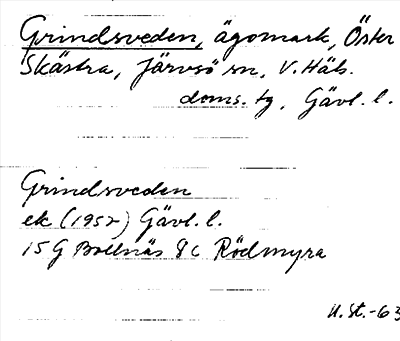 Grindsveden, ägomark, Öster
Skästra, Järvsö sn, V. Häls.
doms. tg, Gävl. l.
Grindsveden
ek (1957) Gävl. l.
15 G Bollnäs 8 c Rödmyra
U. St. -63